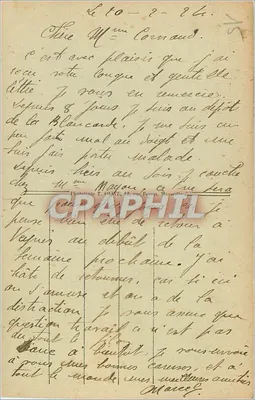 Le 10 - 2 - 24.
Chère Mme Cornand.
C'est avec plaisir que j'ai
reçu votre longue et gentille
lettre Je vous en remercie,
depuis 8 jours je suis au dépôt
de la Blancarde. Je me suis un
peu fait mal au doigt et me
suis fait porter malade
depuis hier au soir. Je couche
chez Mme Mayon
CPAPHIL
que
pense de retour à
Vaynes au début de la
semaine prochaine. J'ai
hâte de retourner, car ici
on s'amuse et on a de la
distraction. Je vous assure que
question travail ce n'est pas
du tout le
Donc à bientôt, Je vous envoie
à vous mes bonnes caresses, et à
tout le monde mes meilleures amitiés
Marcel